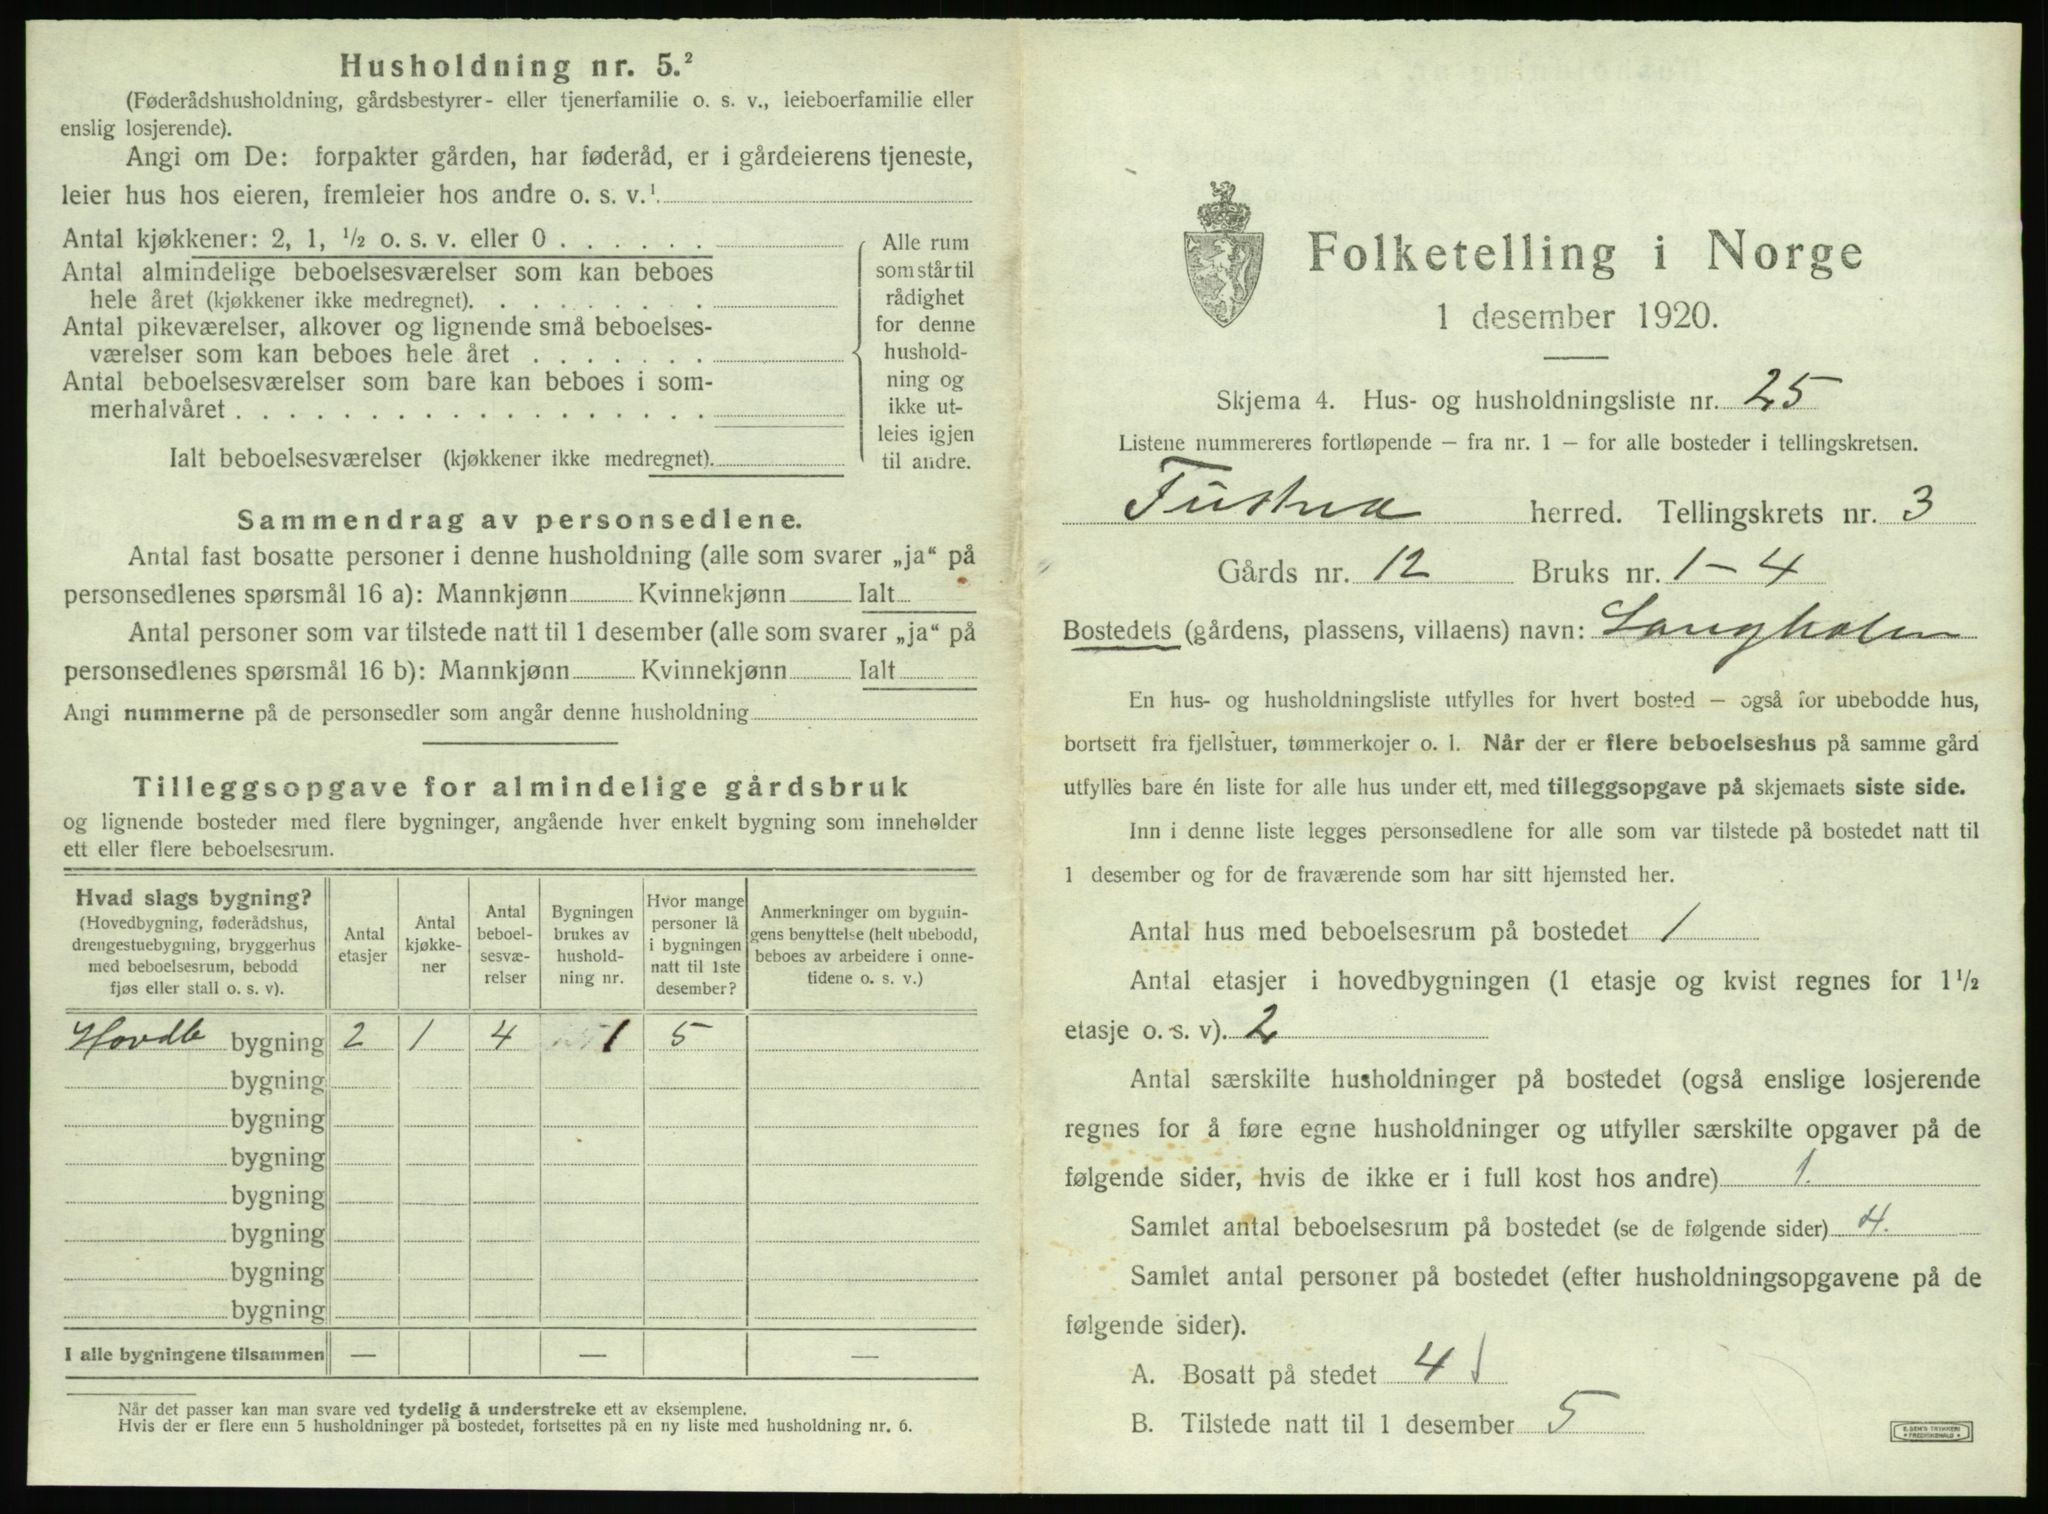 Husholdning nr. 5.²
(Føderådshusholdning, gårdsbestyrer- eller tjenerfamilie o. s. v., leieboerfamilie eller
enslig losjerende).
Angi om De: forpakter gården, har føderåd, er i gårdeierens tjeneste,
leier hus hos eieren, fremleier hos andre o. s. v.¹
Antal kjøkkener: 2, 1, ½ o. s. v. eller 0 . . . . . .
Antal almindelige beboelsesværelser som kan beboes
hele året (kjøkkener ikke medregnet). . . . . . . . .
Antal pikeværelser, alkover og lignende små beboelses-
værelser som kan beboes hele året . . . . . . .
Antal beboelsesværelser som bare kan beboes i som-
merhalvåret . . . . . . . . . . . . . . . . . .
Ialt beboelsesværelser (kjøkkener ikke medregnet).
Alle rum
som står til
rådighet
for denne
hushold-
ning og
ikke ut-
leies igjen
til andre.
Sammendrag av personsedlene.
Antal fast bosatte personer i denne husholdning (alle som svarer „ja“ på
personsedlenes spørsmål 16 a): Mannkjønn Kvinnekjønn Ialt
Antal personer som var tilstede natt til 1 desember (alle som svarer „ja“ på
personsedlenes spørsmål 16 b): Mannkjønn Kvinnekjønn Ialt
Angi nummerne på de personsedler som angår denne husholdning
Tilleggsopgave for almindelige gårdsbruk
og lignende bosteder med flere bygninger, angående hver enkelt bygning som inneholder
ett eller flere beboelsesrum.
Hvad slags bygning?
(Hovedbygning, føderådshus,
drengestuebygning, bryggerhus
med beboelsesrum, bebodd
fjøs eller stall o. s. v).
Antal
etasjer
Antal
kjøkke-
ner
Antal
beboel-
sesvæ-
relser
Bygningen
brukes av
hushold-
ning nr.
Hvor mange
personer lå
i bygningen
natt til 1ste
desember?
Anmerkninger om bygnin-
gens benyttelse (helt ubebodd,
beboes av arbeidere i onne-
tidene o. s. v.)
Hovdb bygning 2 1 4 1 5
bygning
bygning
bygning
bygning
bygning
bygning
bygning
I alle bygningene tilsammen — — —
Når det passer kan man svare ved tydelig å understreke ett av eksemplene.
Hvis der er flere enn 5 husholdninger på bostedet, fortsettes på en ny liste med husholdning nr. 6.
Folketelling i Norge
1 desember 1920.
Skjema 4. Hus- og husholdningsliste nr. 25
Listene nummereres fortløpende — fra nr. 1 — for alle bosteder i tellingskretsen.
Tustna herred. Tellingskrets nr. 3
Gårds nr. 12 Bruks nr. 1-4
Bostedets (gårdens, plassens, villaens) navn: Langholm
En hus- og husholdningsliste utfylles for hvert bosted — også for ubebodde hus,
bortsett fra fjellstuer, tømmerkojer o. l. Når der er flere beboelseshus på samme gård
utfylles bare én liste for alle hus under ett, med tilleggsopgave på skjemaets siste side.
Inn i denne liste legges personsedlene for alle som var tilstede på bostedet natt til
1 desember og for de fraværende som har sitt hjemsted her.
Antal hus med beboelsesrum på bostedet 1
Antal etasjer i hovedbygningen (1 etasje og kvist regnes for 1½
etasje o. s. v). 2
Antal særskilte husholdninger på bostedet (også enslige losjerende
regnes for å føre egne husholdninger og utfyller særskilte opgaver på de
følgende sider, hvis de ikke er i full kost hos andre) 1.
Samlet antal beboelsesrum på bostedet (se de følgende sider) 4.
Samlet antal personer på bostedet (efter husholdningsopgavene på de
følgende sider).
A. Bosatt på stedet 4
B. Tilstede natt til 1 desember 5